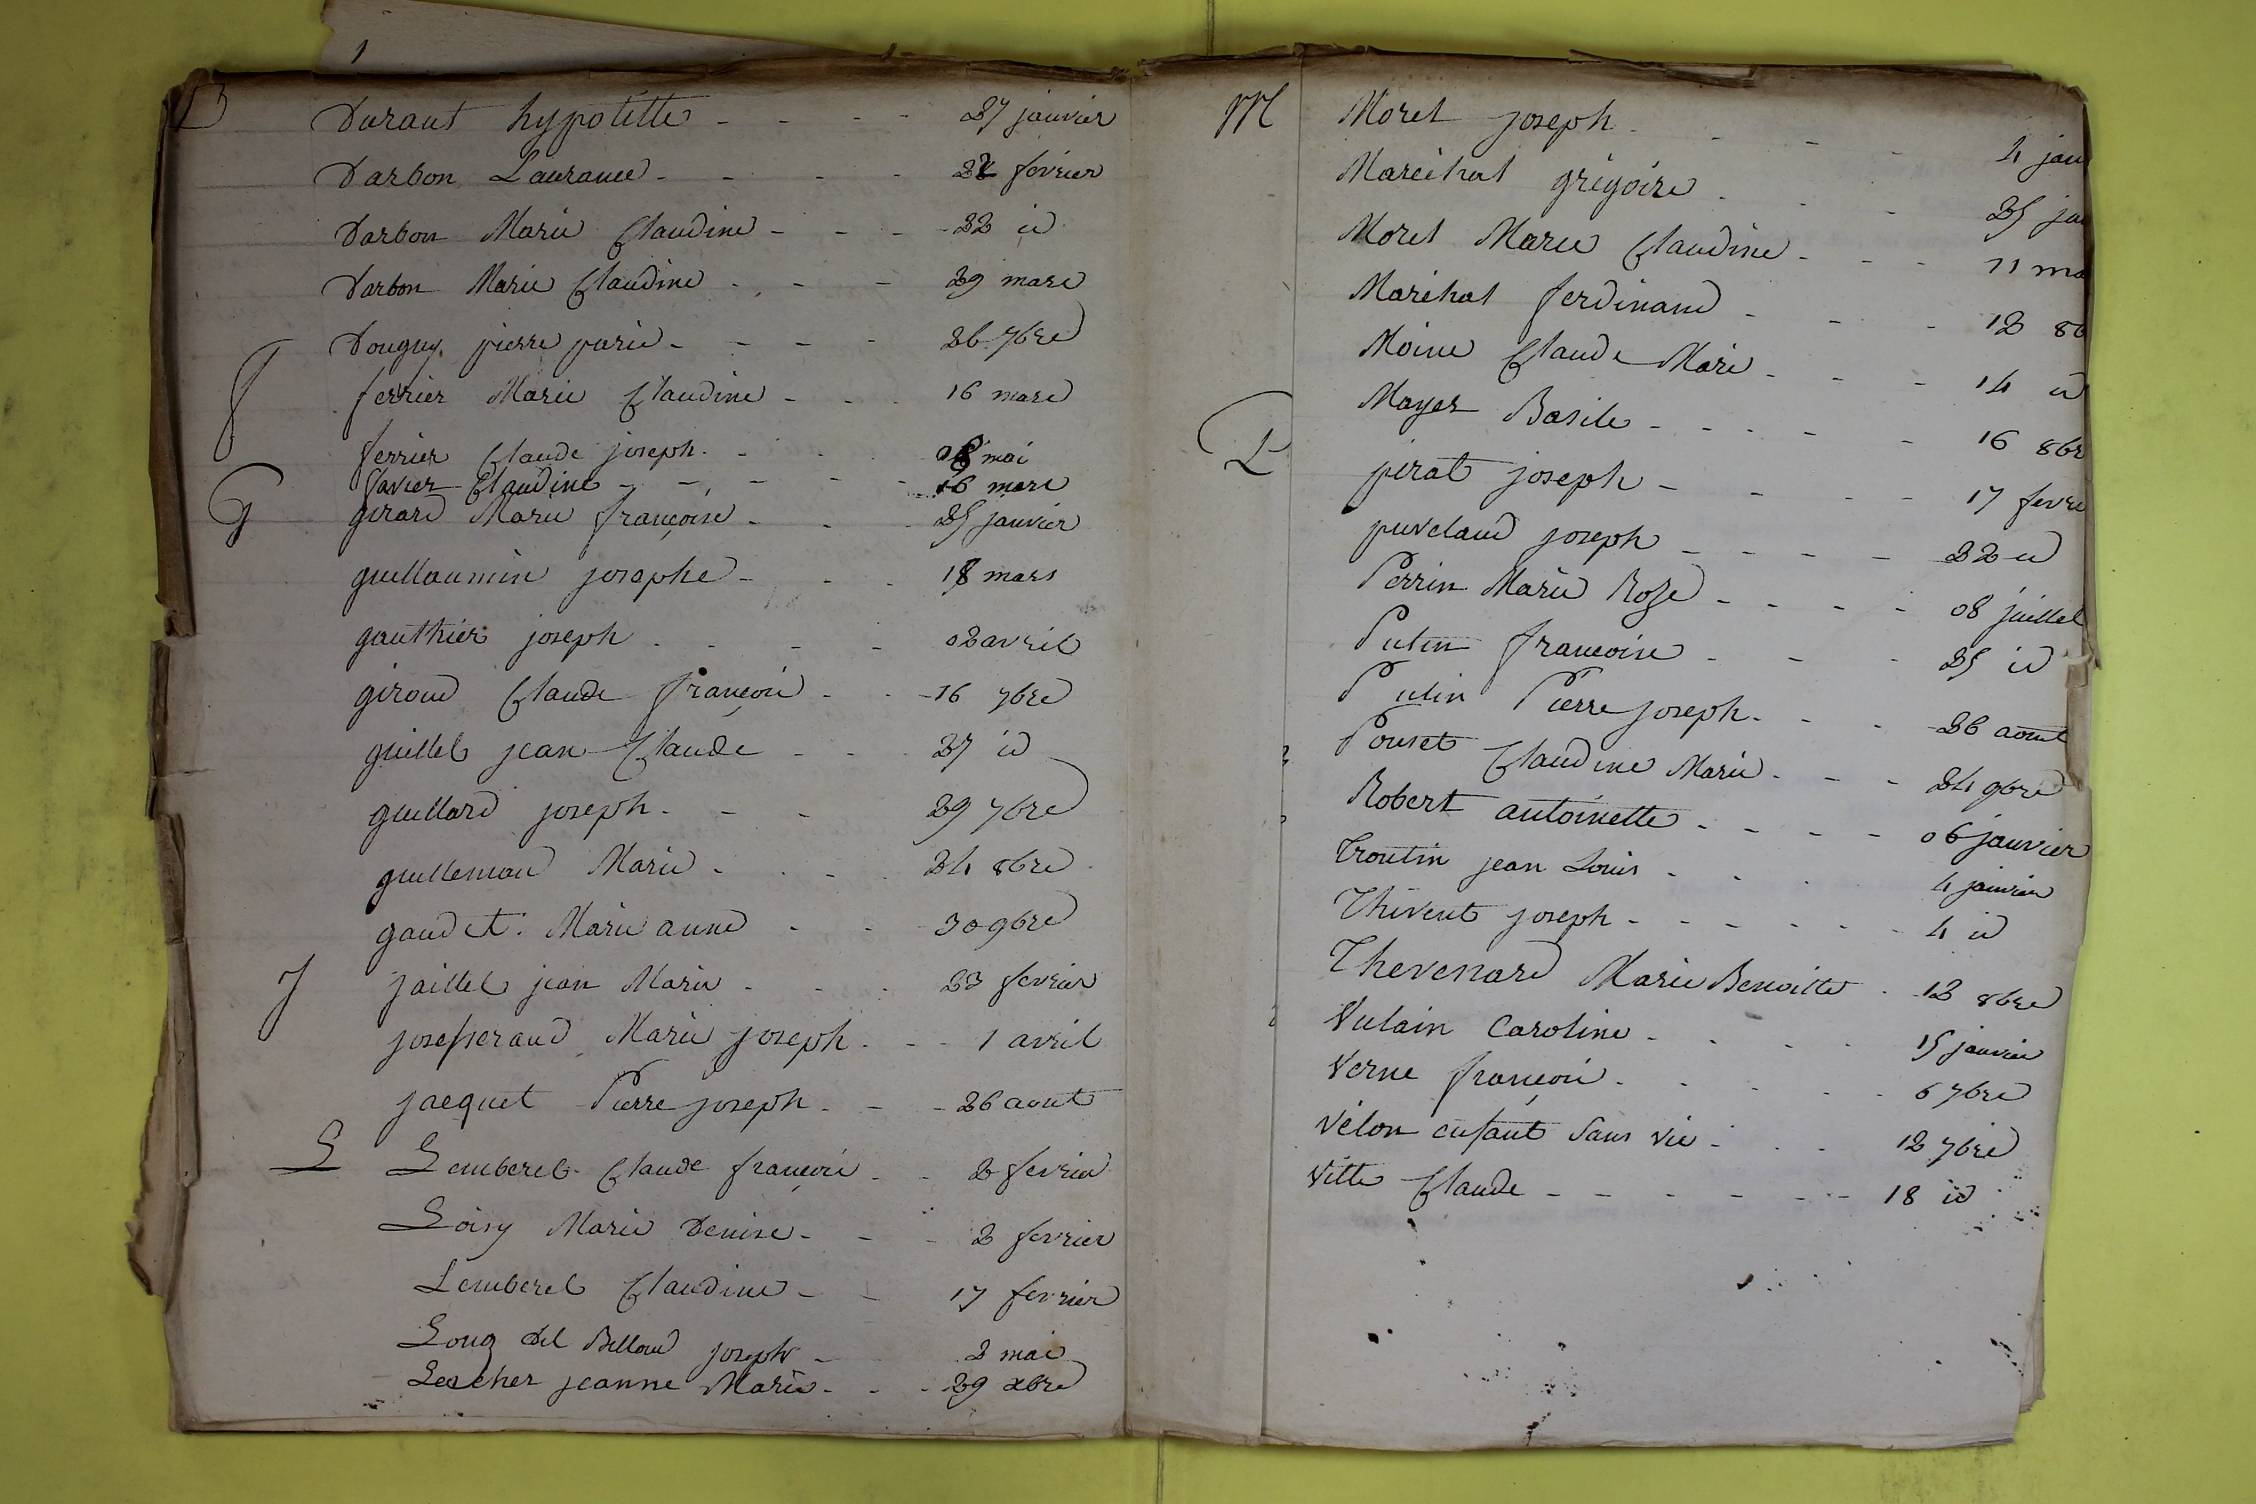 D Durant hypolitte - - - - 27 janvier
Darbon Laurance - - - - 22 fevrier
Darbon Marie Claudine - - - 22 id
Darbon Marie Claudine - - - 29 mars
Douguy pierre marie - - - - 26 7bre
F ferrier Marie Claudine - - - 16 mars
ferrier Claude joseph - - - 08 mai
favier Claudine - - - - - 16 mars
G girard Marie françoise - - - 25 janvier
guillaumin josephe - - - 18 mars
gauthier joseph - - - - 02 avril
giroud Claude françois - - 16 7bre
guillet jean Claude - - - 27 id
guillard joseph - - - 29 7bre
guillemau Marie - - - - 24 8bre
gaudet Marie anne - - - 30 9bre
J jaillet jean Marie - - - 23 fevrier
josserand Marie joseph - - - 1 avril
jacquet Pierre joseph - - - 26 aout
L Lemberet Claude françois - - 2 fevrier
Loisy Marie Denise - - - 2 fevrier
Lemberet Claudine - - 17 fevrier
Long dit Billoud joseph - 2 mai
Lescher jeanne Marie - - - 29 xbre
M Moret joseph - - - - 4 jan
Maréchal grégoire - - - 25 jan
Moret Marie Claudine - - - 11 ma
Maréhal ferdinand - - - 12 8b
Moine Claude Marie - - - 14 id
Mayer Basile - - - - - 16 8br
P pirat joseph - - - - 17 fevri
puveland joseph - - - - 22 id
Perrin Marie Rose - - - - 08 juillet
Putin françoise - - - 25 id
Putin Pierre joseph - - - 26 aout
Pouset Claudine Marie - - - 24 9bre
Robert antoinette - - - - 06 janvier
Troutin jean Louis - - - 4 janvier
Thivent joseph - - - - - - 4 id
Thevenard Marie Benoitte - 12 8bre
Vulain Caroline - - - - 15 janvier
Verne françois - - - - 6 7bre
Vélon enfant sans vie - - - 12 7bre
Vitte Claude - - - - - - 18 id